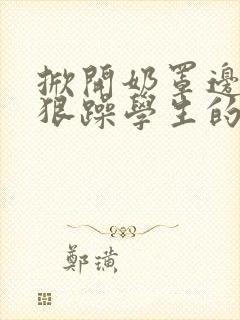 掀開奶罩邊
狠躁學生的
鄭璜